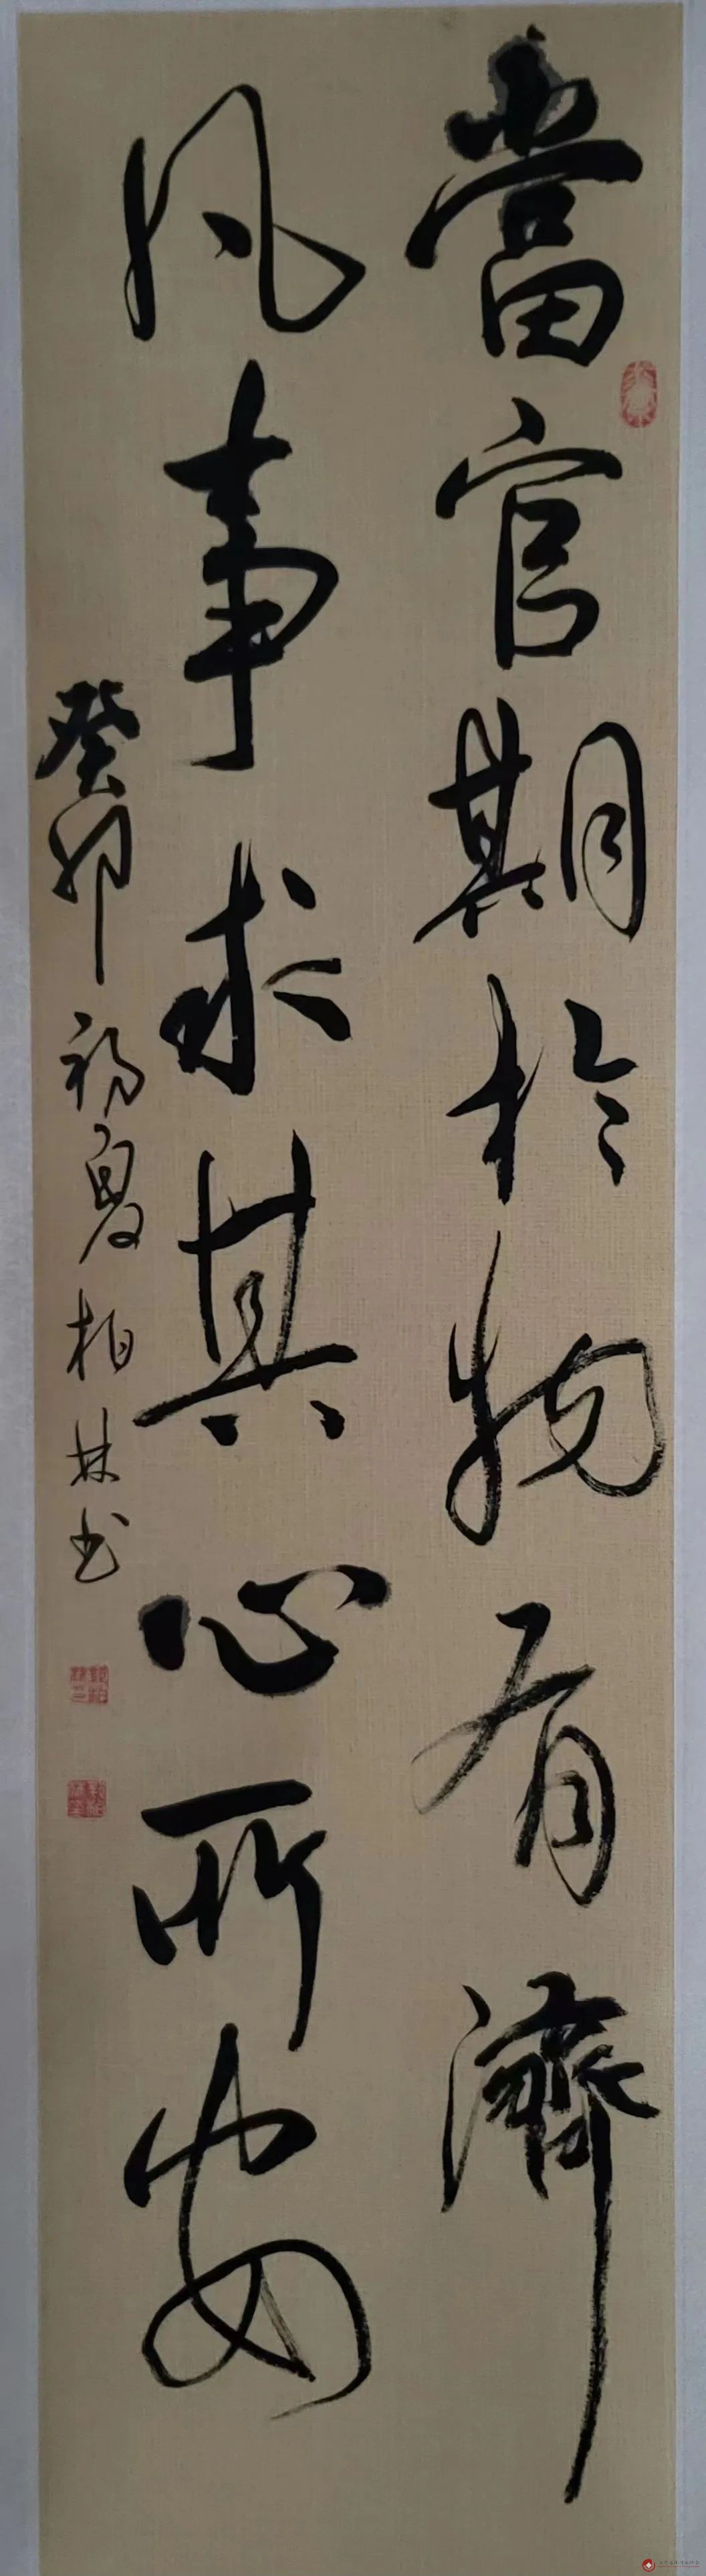 當官期於物有濟
凡事求其心所安
癸卯初夏柏林书